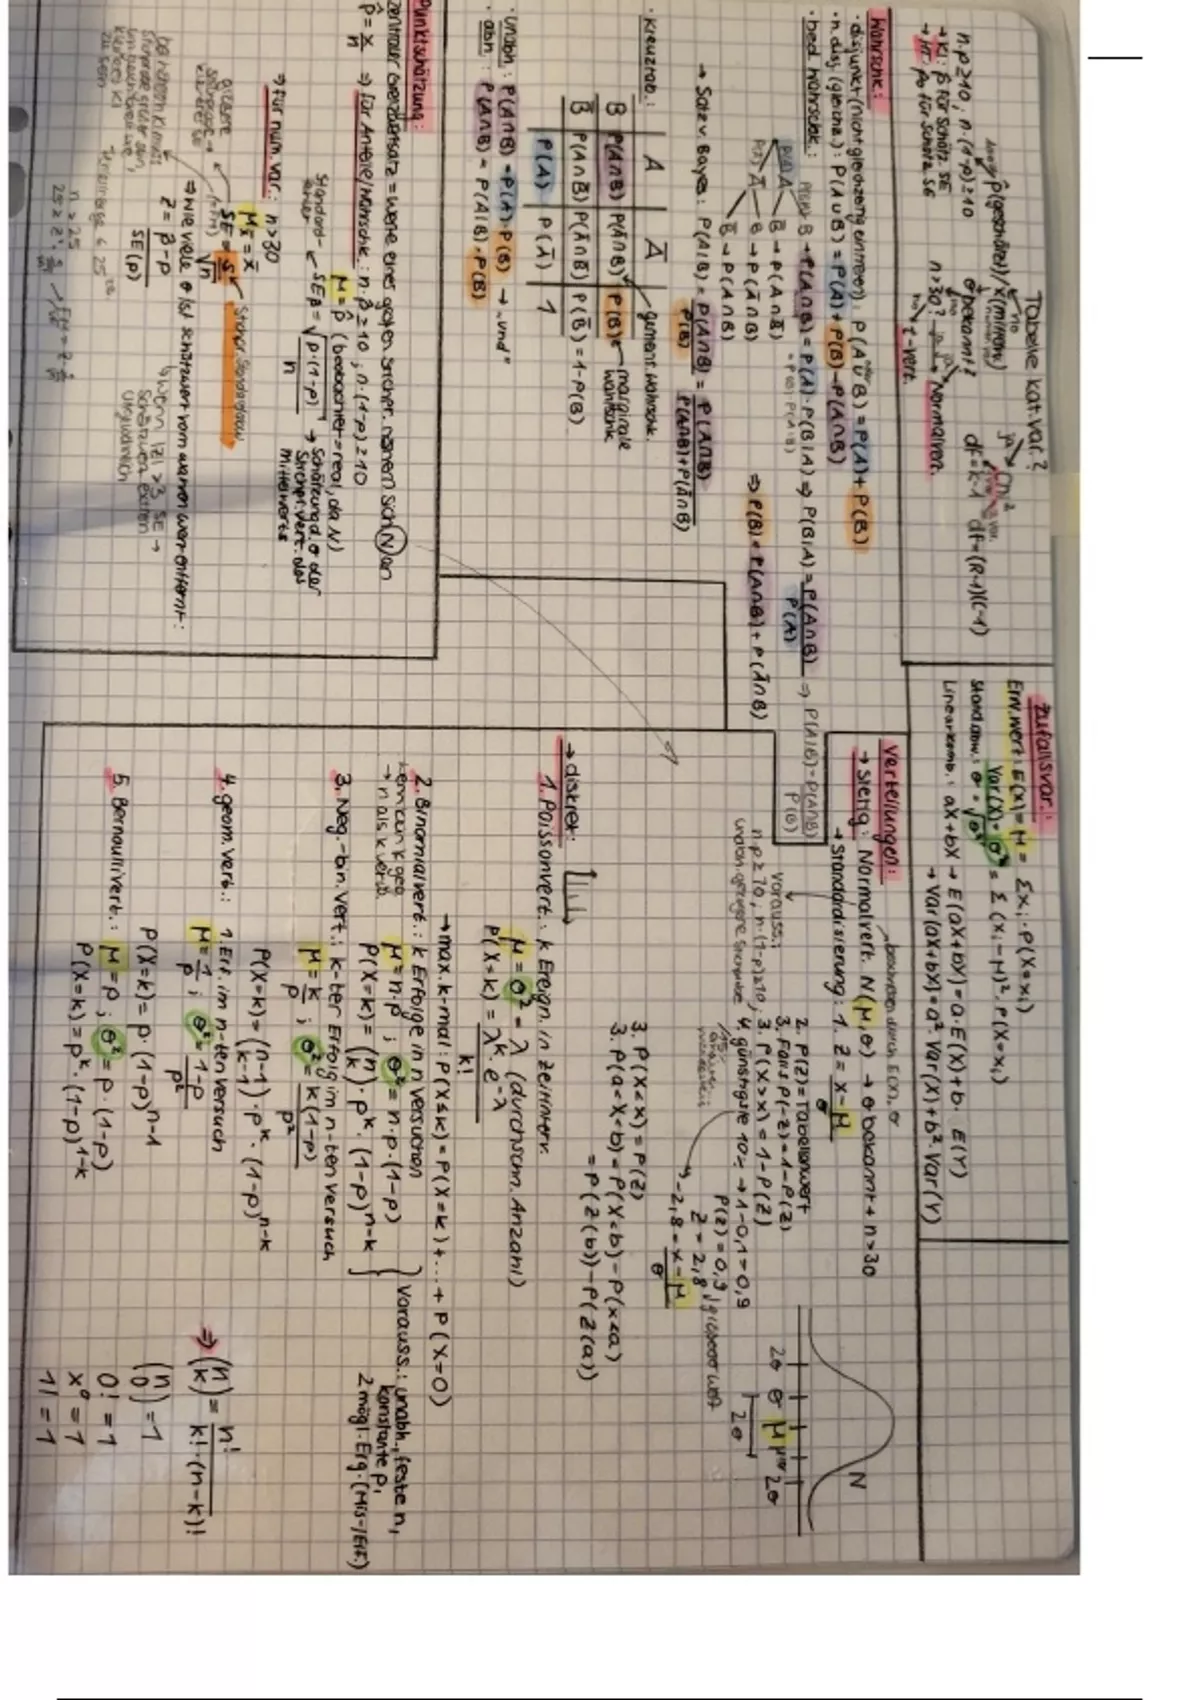 Tabelle kat. var.?
n·p ≥ 10, n·(1-p) ≥ 10
→ KI: p̂ für Schätz. SE
→ HT: p₀ für Schätz. SE
p̂ (geschätzt) / x̄ (mittelw)
σ bekannt?
n > 30?
Normalvert.
t-vert.
Chi²
df = k-1
df = (R-1)(C-1)
Wahrschk.:
· disjunkt (nicht gleichzeitig eintreten): P(A∪B) = P(A) + P(B)
· n. disj. (gleichz.): P(A∪B) = P(A) + P(B) - P(A∩B)
· bed. Wahrschk.:
B → P(A∩B) = P(A)·P(B|A) ⇒ P(B|A) = P(A∩B) / P(A) ⇒ P(A|B) = P(A∩B) / P(B)
= P(B)·P(A|B)
B̄ → P(A∩B̄)
B → P(Ā∩B)
B̄ → P(Ā∩B̄)
⇒ P(B) = P(A∩B) + P(Ā∩B)
→ Satz v. Bayes: P(A|B) = P(A∩B) / P(B) = P(A∩B) / P(A∩B)+P(Ā∩B)
· Kreuztab.:
A Ā
gemeint. Wahrschk.
B P(A∩B) P(Ā∩B) P(B) ← marginale
B̄ P(A∩B̄) P(Ā∩B̄) P(B̄) = 1-P(B)
P(A) P(Ā) 1
· unabh.: P(A∩B) = P(A)·P(B) → „und"
· abh.: P(A∩B) = P(A|B)·P(B)
Punktschätzung:
zentraler Grenzwertsatz = werte eines guten Stichpr. nähern sich N an
p̂ = x/n ⇒ für Anteile/Wahrschk.: n·p̂ ≥ 10, n·(1-p) ≥ 10
μ = p̂ (beobachtet = real, da N)
Standard-fehler ← SEp̂ = √(p·(1-p) / n) → Schätzung d. σ der
Stichpr. vert. des
Mittelwerts
⇒ für num. var.: n > 30
μx̄ = x̄
SE = s / √n
⇒ wie viele σ ist schätzwert vom wahren wert entfernt:
z = p̂-p / SE(p)
wenn |z| > 3 SE →
Zufallsvar.:
Erw. wert: E(X) = μ = Σxᵢ·P(X=xᵢ)
Var(X) = σ² = Σ(xᵢ-μ)²·P(X=xᵢ)
Standabw.: σ = √σ²
Linearkomb.: aX+bX → E(aX+bY) = a·E(X)+b·E(Y)
→ Var(aX+bX) = a²·Var(X)+b²·Var(Y)
Verteilungen:
→ Stetig: Normalvert. N(μ,σ) → σ bekannt + n > 30
→ Standardisierung: 1. z = x-μ / σ
2. P(Z) = Tabellenwert
3. Falls P(-Z) = 1-P(Z)
3. P(X>x) = 1-P(Z)
4. günstigste 10% → 1-0,1 = 0,9
P(Z) = 0,9
z = 2,8
-2,8 = x-μ / σ
Vorauss.:
n·p ≥ 10, n·(1-p) ≥ 10
3. P(X<x) = P(Z)
3. P(a<X<b) = P(X<b) - P(X<a)
= P(Z(b)) - P(Z(a))
2σ σ μ 2σ
2σ
N
→ diskret:
1. Poissonvert.: k Ereign. in Zeitinterv.
μ = σ² = λ (durchschn. Anzahl)
P(X=k) = λᵏ·e^-λ / k!
→ max. k-mal: P(X≤k) = P(X=k) + ... + P(X=0)
2. Binomialvert.: k Erfolge in n Versuchen
μ = n·p ; σ² = n·p·(1-p)
P(X=k) = (n k)·pᵏ·(1-p)ⁿ⁻ᵏ
Vorauss.: unabh., feste n,
konstante p,
2 mögl. Erg. (Mis-/Erf.)
3. Neg.-bin. Vert.: k-ter Erfolg im n-ten Versuch
μ = k/p ; σ² = k(1-p) / p²
P(X=k) = (n-1 k-1)·pᵏ·(1-p)ⁿ⁻ᵏ
4. geom. Vert.: 1. Erf. im n-ten Versuch
μ = 1/p ; σ² = 1-p / p²
P(X=k) = p·(1-p)ⁿ⁻¹
5. Bernoullivert.: μ = p ; σ² = p·(1-p)
P(X=k) = pᵏ·(1-p)¹⁻ᵏ
⇒ (n k) = n! / k!·(n-k)!
(n 0) = 1
0! = 1
x⁰ = 1
1! = 1